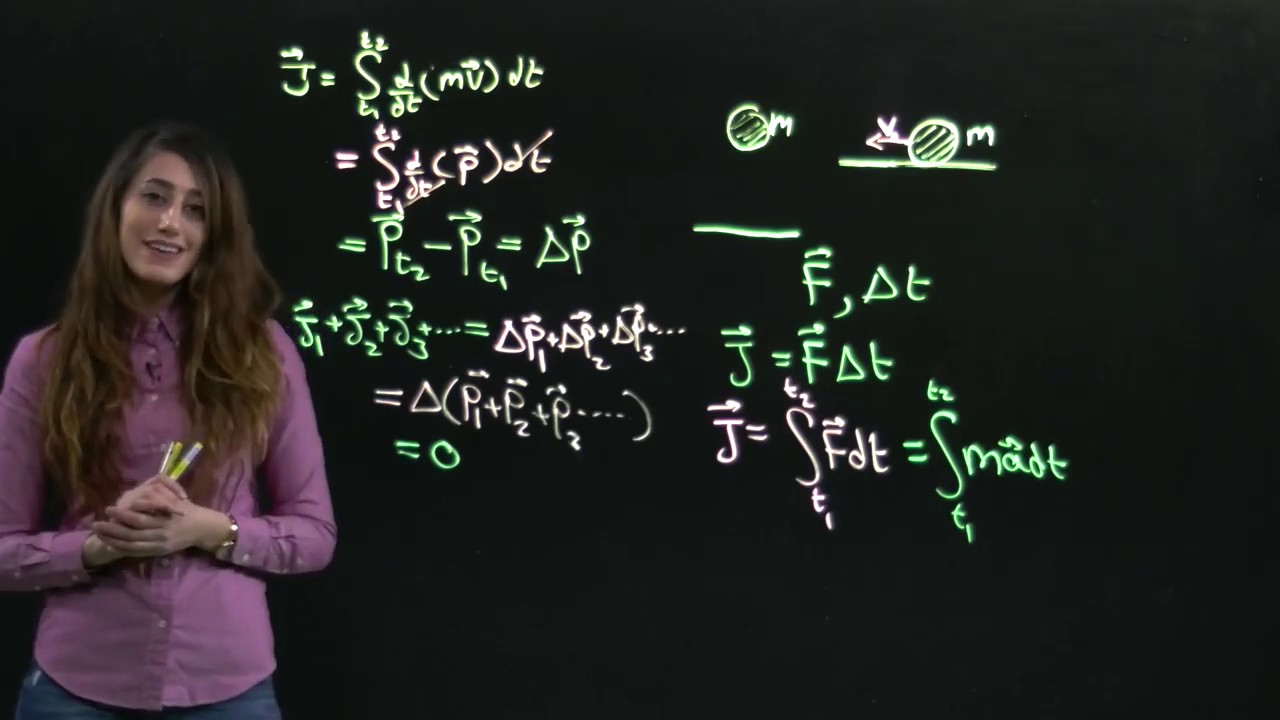 J⃗ = ∫_{t₁}^{t₂} d/dt (mv⃗) dt
= ∫_{t₁}^{t₂} d/dt (p⃗) dt
= P⃗_{t₂} − P⃗_{t₁} = Δp⃗
J⃗₁ + J⃗₂ + J⃗₃ + ···· = Δp⃗₁ + Δp⃗₂ + Δp⃗₃ + ···
= Δ(p⃗₁ + p⃗₂ + p⃗₃ ·····)
= 0
m
v m
F⃗, Δt
J⃗ = F⃗ Δt
J⃗ = ∫_{t₁}^{t₂} F⃗ dt = ∫_{t₁}^{t₂} ma⃗ dt